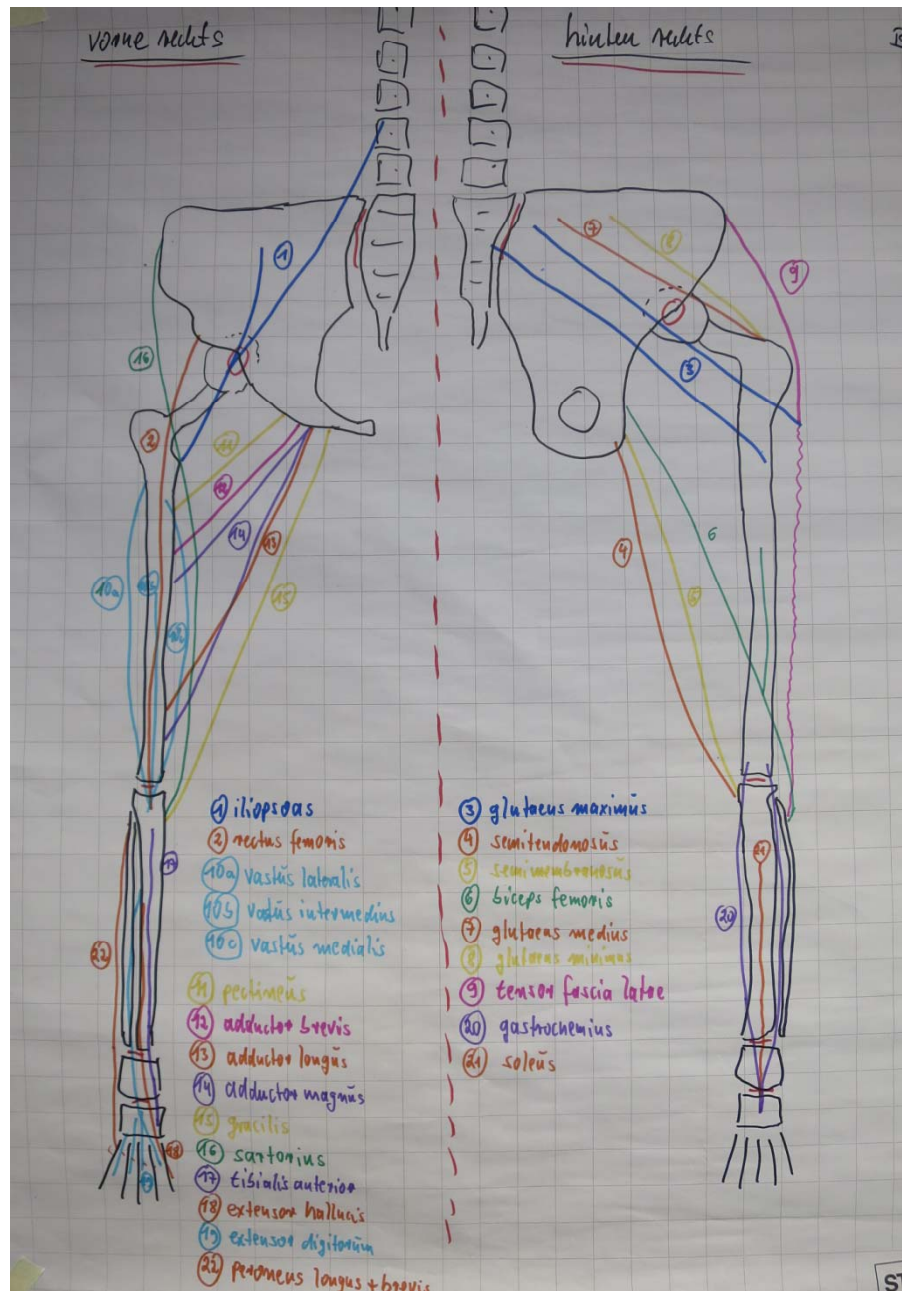 vorne rechts
hinten rechts
1
16
2
11
12
14
13
15
10a
10b
10c
17
22
18
19
7
8
9
3
4
5
6
20
21
1 iliopsoas
2 rectus femoris
10a vastūs lateralis
10b vastūs intermedius
10c vastūs medialis
11 pectineūs
12 adductor brevis
13 adductor longūs
14 adductor magnūs
15 gracilis
16 sartorius
17 tibialis anterior
18 extensor hallucis
19 extensor digitorūm
22 peroneus longus + brevis
3 glutaeus maximūs
4 semitendonosūs
5 semimembranosūs
6 biceps femoris
7 glutaeus medius
8 glutaeus minimus
9 tensor fascia latae
20 gastrochemius
21 soleūs
ST